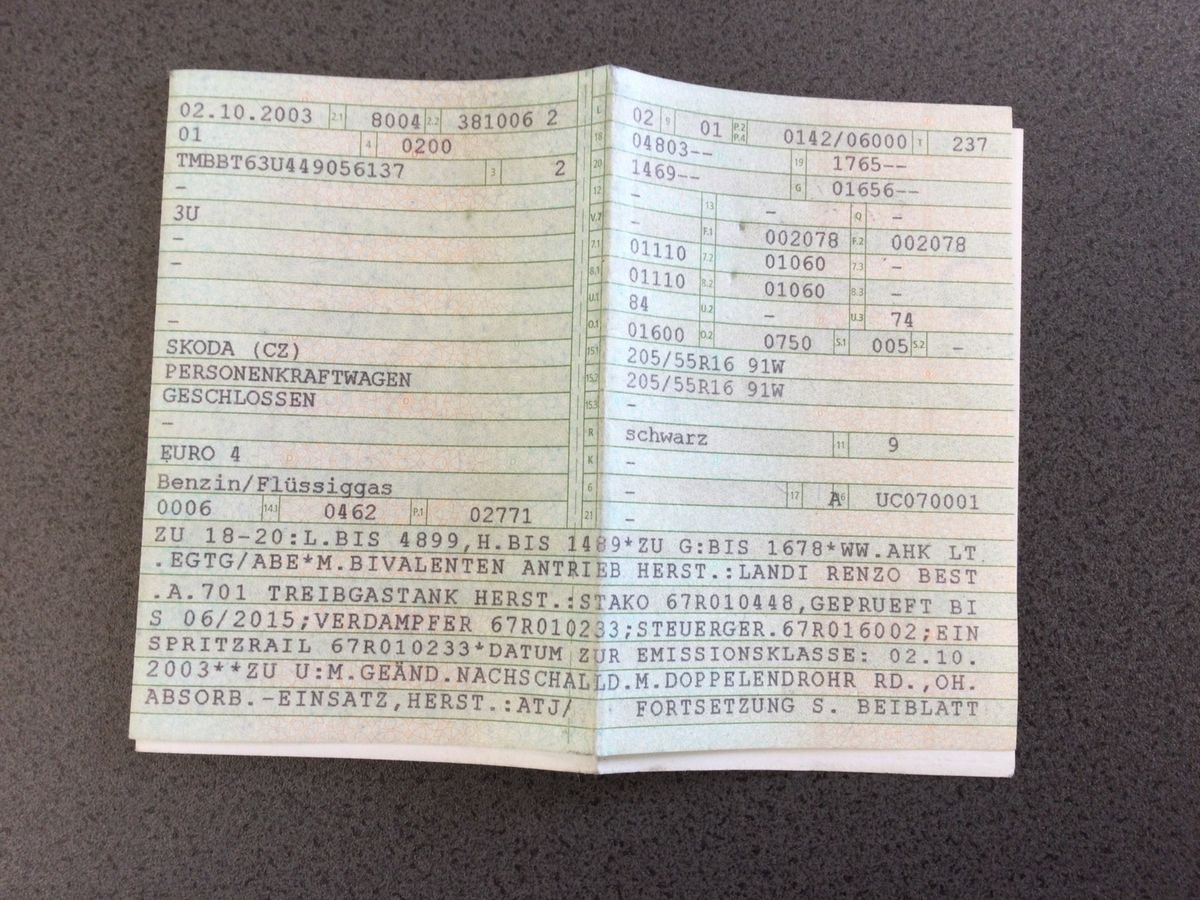 02.10.2003 2.1 8004 2.2 381006 2 L 02 9 01 P.2 P.4 0142/06000 T 237
01 4 0200 18 04803-- 19 1765--
TMBBT63U449056137 3 2 20 1469-- G 01656--
- 12 - 13 - Q -
3U V.7 - F.1 002078 F.2 002078
- 7.1 01110 7.2 01060 7.3 -
- 8.1 01110 8.2 01060 8.3 -
U.1 84 U.2 - U.3 74
- O.1 01600 O.2 0750 S.1 005 S.2 -
SKODA (CZ) 15.1 205/55R16 91W
PERSONENKRAFTWAGEN 15.2 205/55R16 91W
GESCHLOSSEN 15.3 -
- R schwarz 11 9
EURO 4 K -
Benzin/Flüssiggas 6 - 17 A 16 UC070001
0006 14.1 0462 P.1 02771 21 -
ZU 18-20:L.BIS 4899,H.BIS 1489*ZU G:BIS 1678*WW.AHK LT
.EGTG/ABE*M.BIVALENTEN ANTRIEB HERST.:LANDI RENZO BEST
.A.701 TREIBGASTANK HERST.:STAKO 67R010448,GEPRUEFT BI
S 06/2015;VERDAMPFER 67R010233;STEUERGER.67R016002;EIN
SPRITZRAIL 67R010233*DATUM ZUR EMISSIONSKLASSE: 02.10.
2003**ZU U:M.GEÄND.NACHSCHALLD.M.DOPPELENDROHR RD.,OH.
ABSORB.-EINSATZ,HERST.:ATJ/ FORTSETZUNG S. BEIBLATT